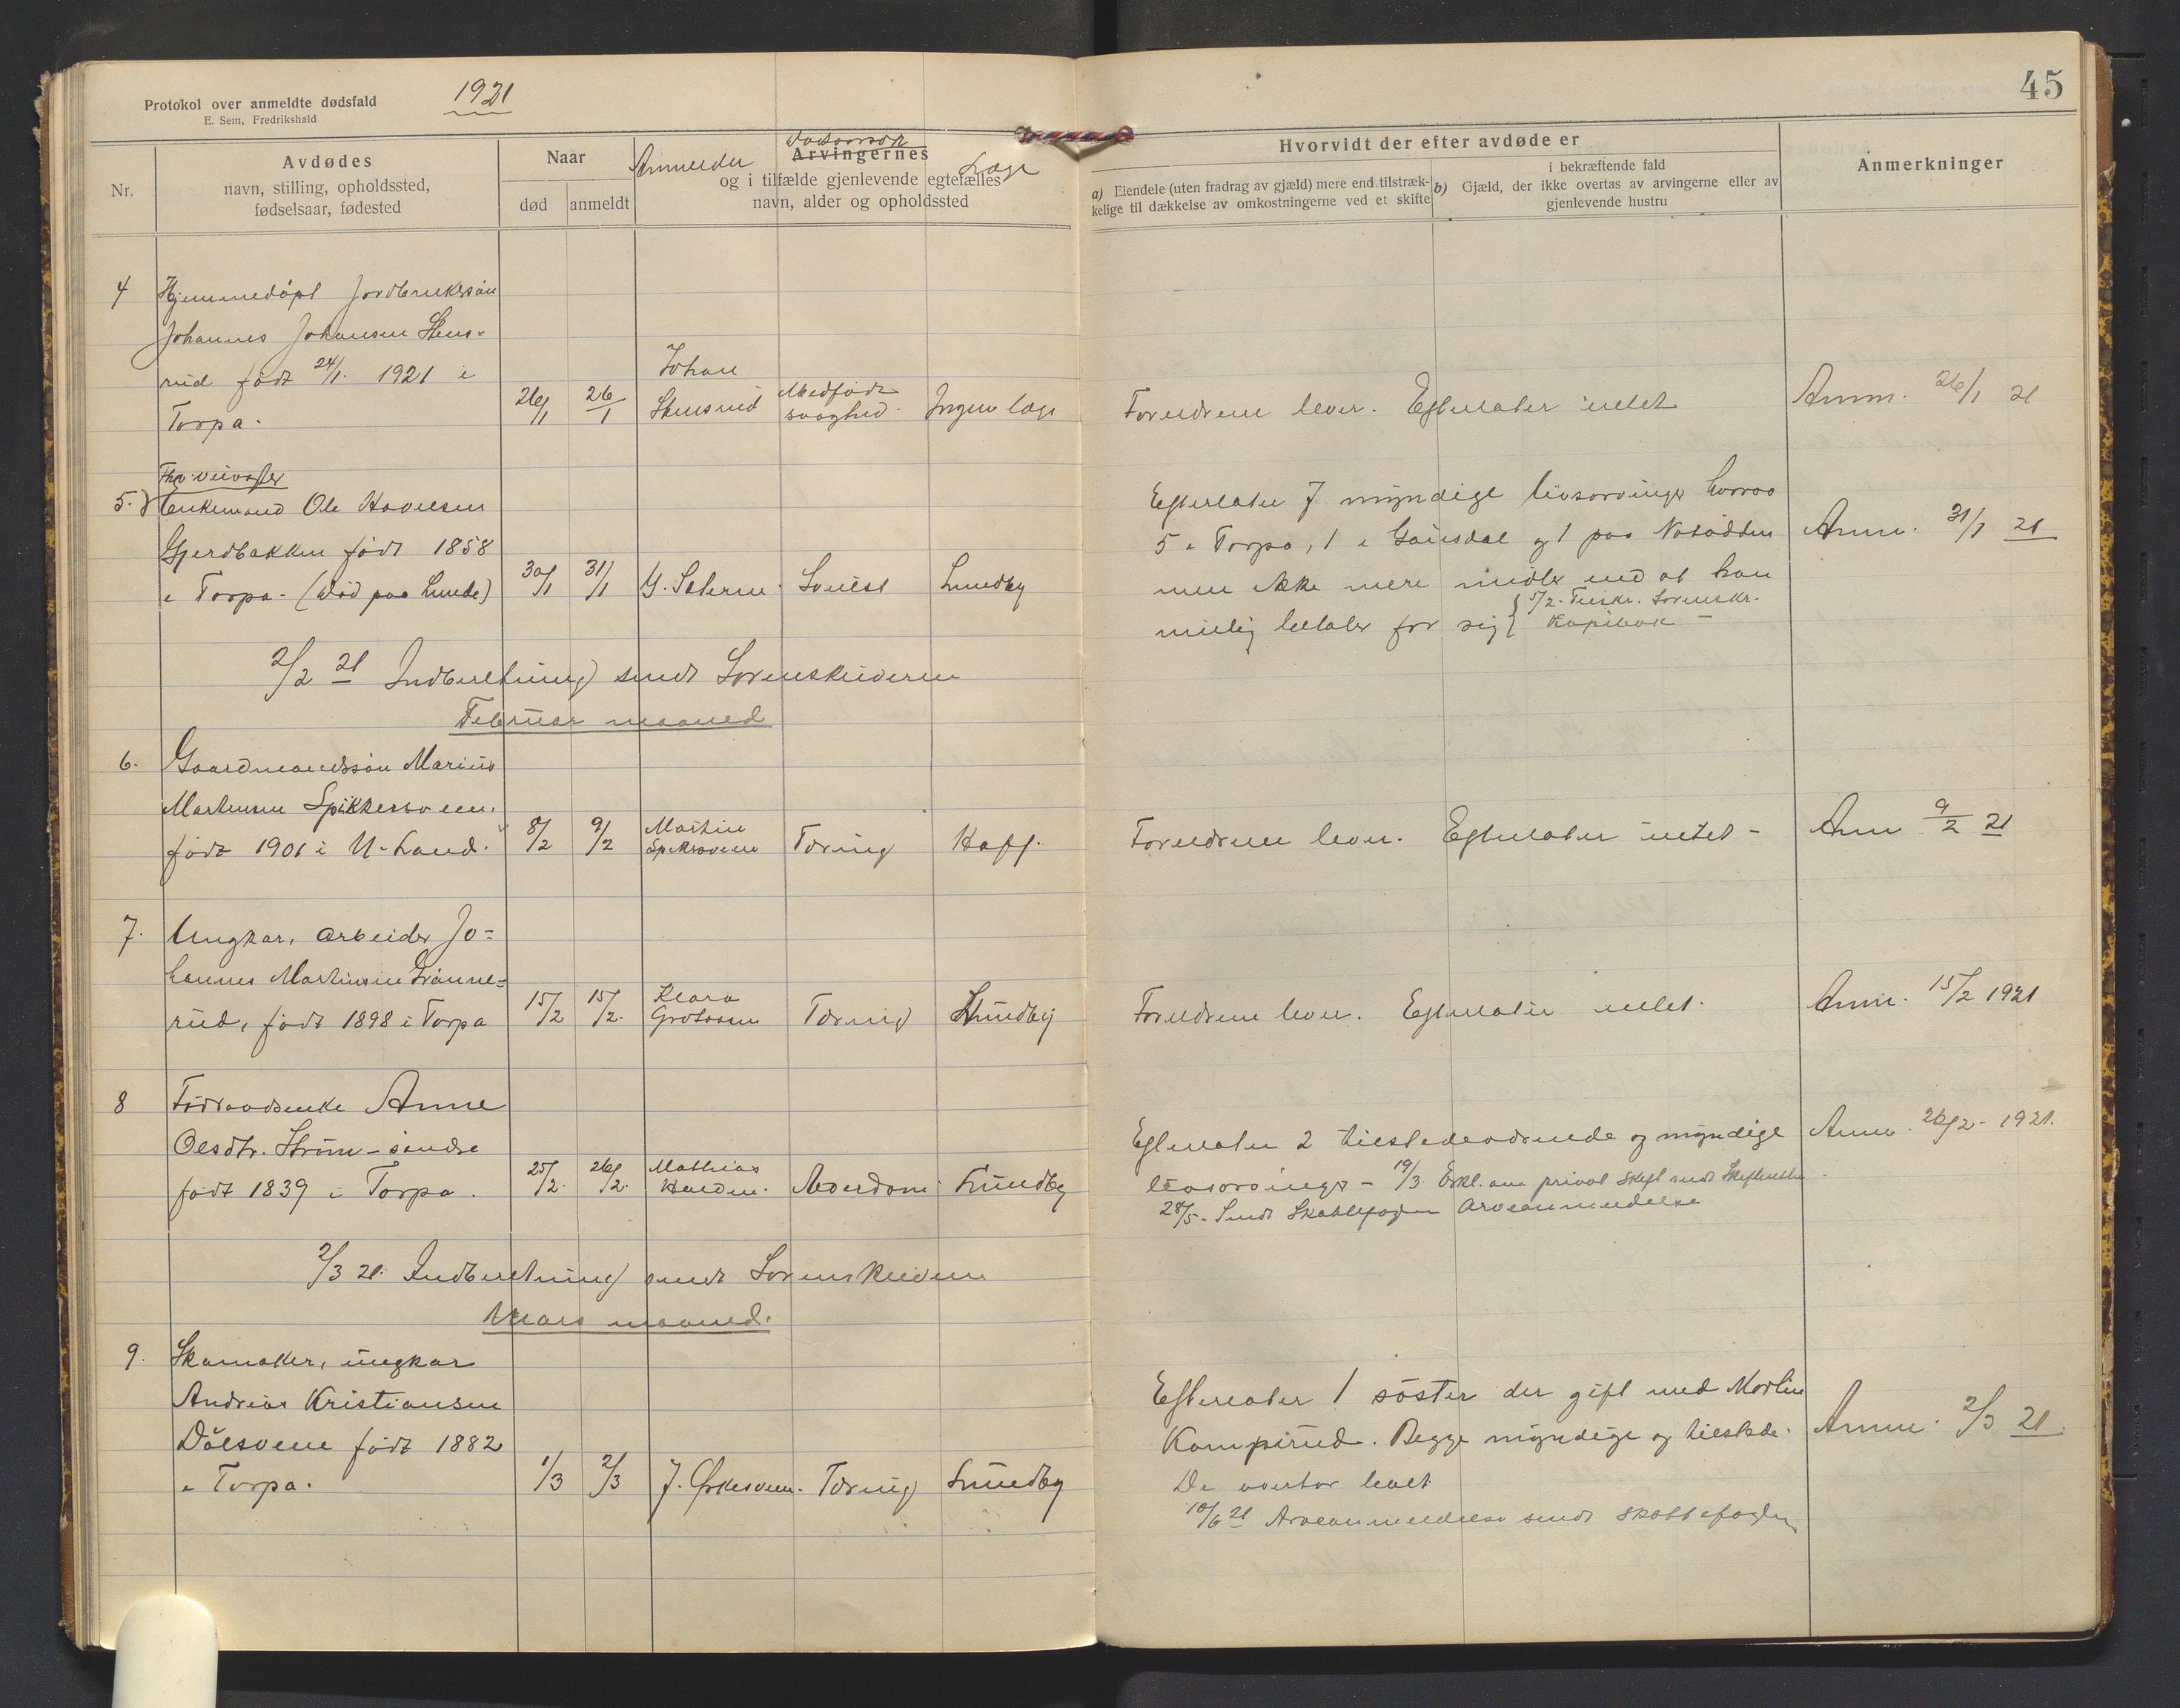 Protokol over anmeldte dødsfald
E. Sem, Fredrikshald
1921
45
Nr.
Avdødes
navn, stilling, opholdssted,
fødselsaar, fødested
Naar
død
anmeldt
Anmelder
Dødsaarsak
Læge
Arvingernes
og i tilfælde gjenlevende egtefælles
navn, alder og opholdssted
Hvorvidt der efter avdøde er
a) Eiendele (uten fradrag av gjæld) mere end tilstræk-
kelige til dækkelse av omkostningerne ved et skifte
i bekræftende fald
b) Gjæld, der ikke overtas av arvingerne eller av
gjenlevende hustru
Anmerkninger
4 Hjemmedøpt Jordbrukersøn
Johannes Johansen Stens-
rud født 24/1. 1921 i
Torpa.
26/1 26/1 Johan Stensrud Medfødt svaghed. Ingen læge
Forældrene lever. Efterlater intet
Anm. 26/1 21
Fhv. veivogter
5. Enkemand Ole Hovelsen
Gjerdbakken født 1858
i Torpa. (død paa Lunde)
30/1 31/1 Lundby
Efterlater 7 myndige livsarvinger hvorav
5 i Torpa, 1 i Gausdal og 1 paa Notodden
men ikke mere midler end at han
Anm. 31/1 21
2/2 21 Indberetning sendt Sorenskriveren
Februar maaned
6. Gaardmandssøn Marius
Martinsen Spikkersveen.
født 1901 i N. Land.
8/2 9/2 Martin Spikersveen Tæring Hoff.
Forældrene lever. Efterlater intet -
Anm 9/2 21
7. Ungkar, arbeider Jo=
hannes Martinsen Grønne=
rud, født 1898 i Torpa
15/2 15/2. Klara Tæring Lundby
Forældrene lever. Efterlater intet.
Anm. 15/2 1921
8 Føderaadsenke Anne
Olsdtr. Strøm-søndre
født 1839 i Torpa.
25/2. 26/2. Mathias Alderdom Lundby
Efterlater 2 tilstedeværende og myndige
livsarvinger - 19/3. Erkl. om privat skift sendt Skifteretten
28/5. Sendt Skattefogden Arveanmeldelse
Anm. 26/2 - 1921.
2/3 21. Indberetning sendt Sorenskriveren
Mars maaned.
9. Skomaker, ungkar
Andreas Kristiansen
Dølsveen født 1882
i Torpa.
1/3 2/3 Tæring Lundby
Efterlater 1 søster der gift med Martin
Kampsrud. Begge myndige og tilstede.
De overtar boet
10/6 21 Arveanmeldelse sendt skattefogden
Anm. 2/3 21.